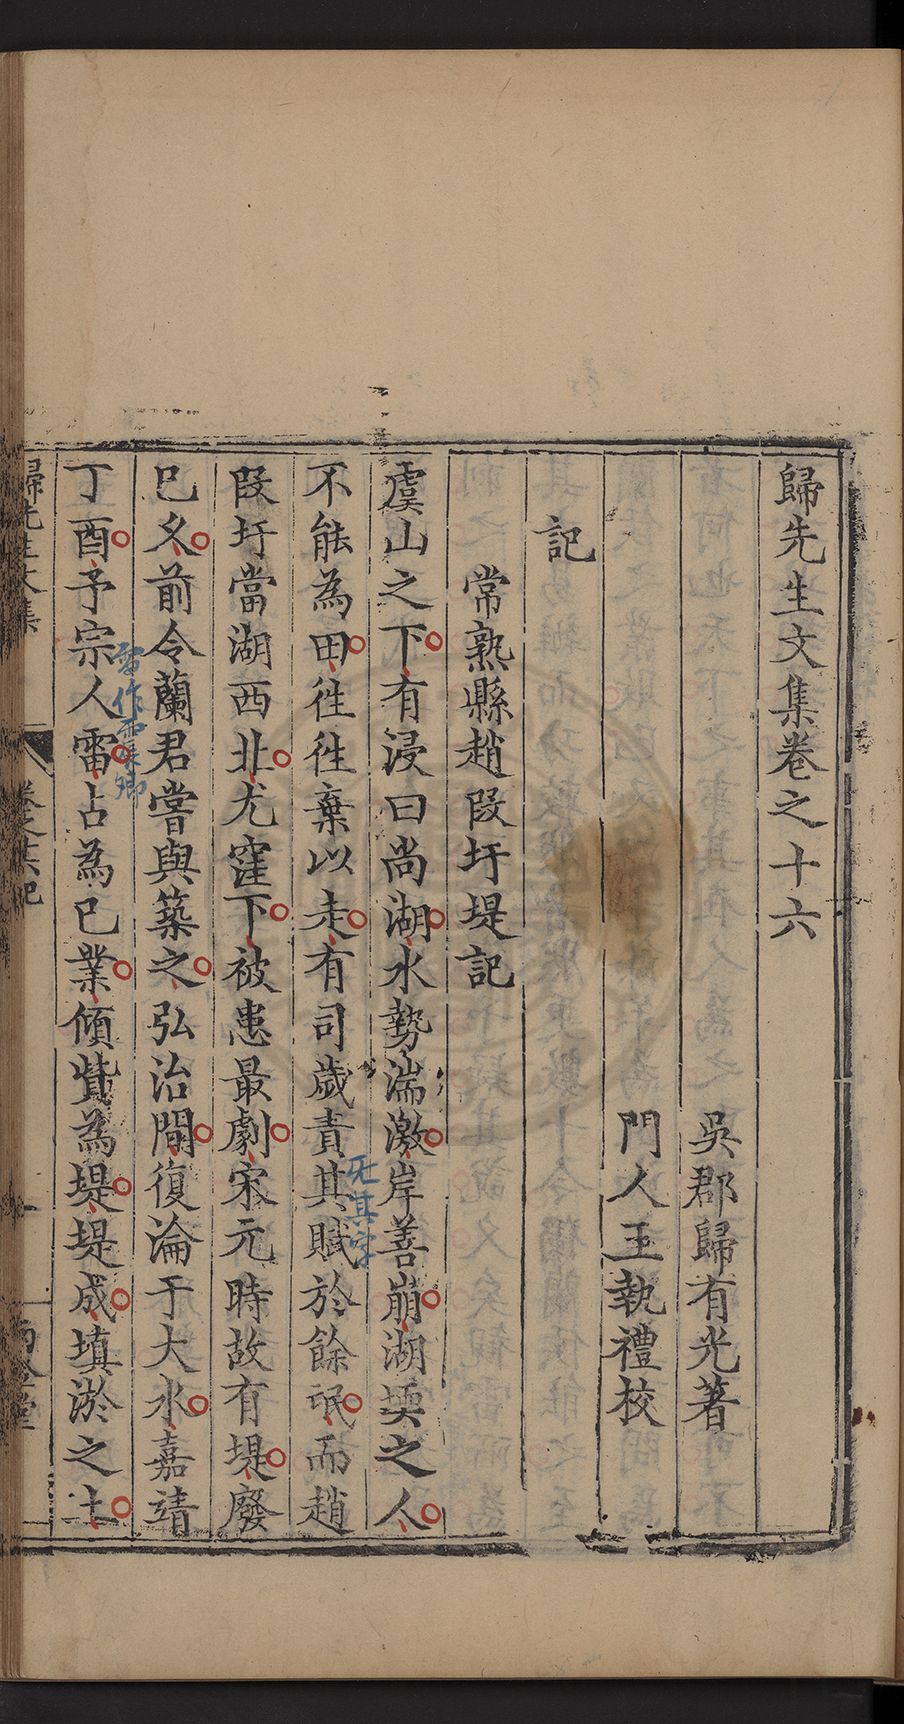 歸先生文集卷之十六
吳郡歸有光著
門人王執禮校
記
常熟縣趙叚圩堤記
虞山之下有浸曰尚湖水勢湍激岸善崩湖堧之人
不能為田往往棄以走有司歲責其賦於餘氓而趙
无其字
叚圩當湖西北尤窪下被患最劇宋元時故有堤廢
已久前令蘭君嘗與築之弘治間復淪于大水嘉靖
雷作雷卿
丁酉予宗人雷占為己業傾貲為堤堤成填淤之土
歸先生文集
卷之十六記